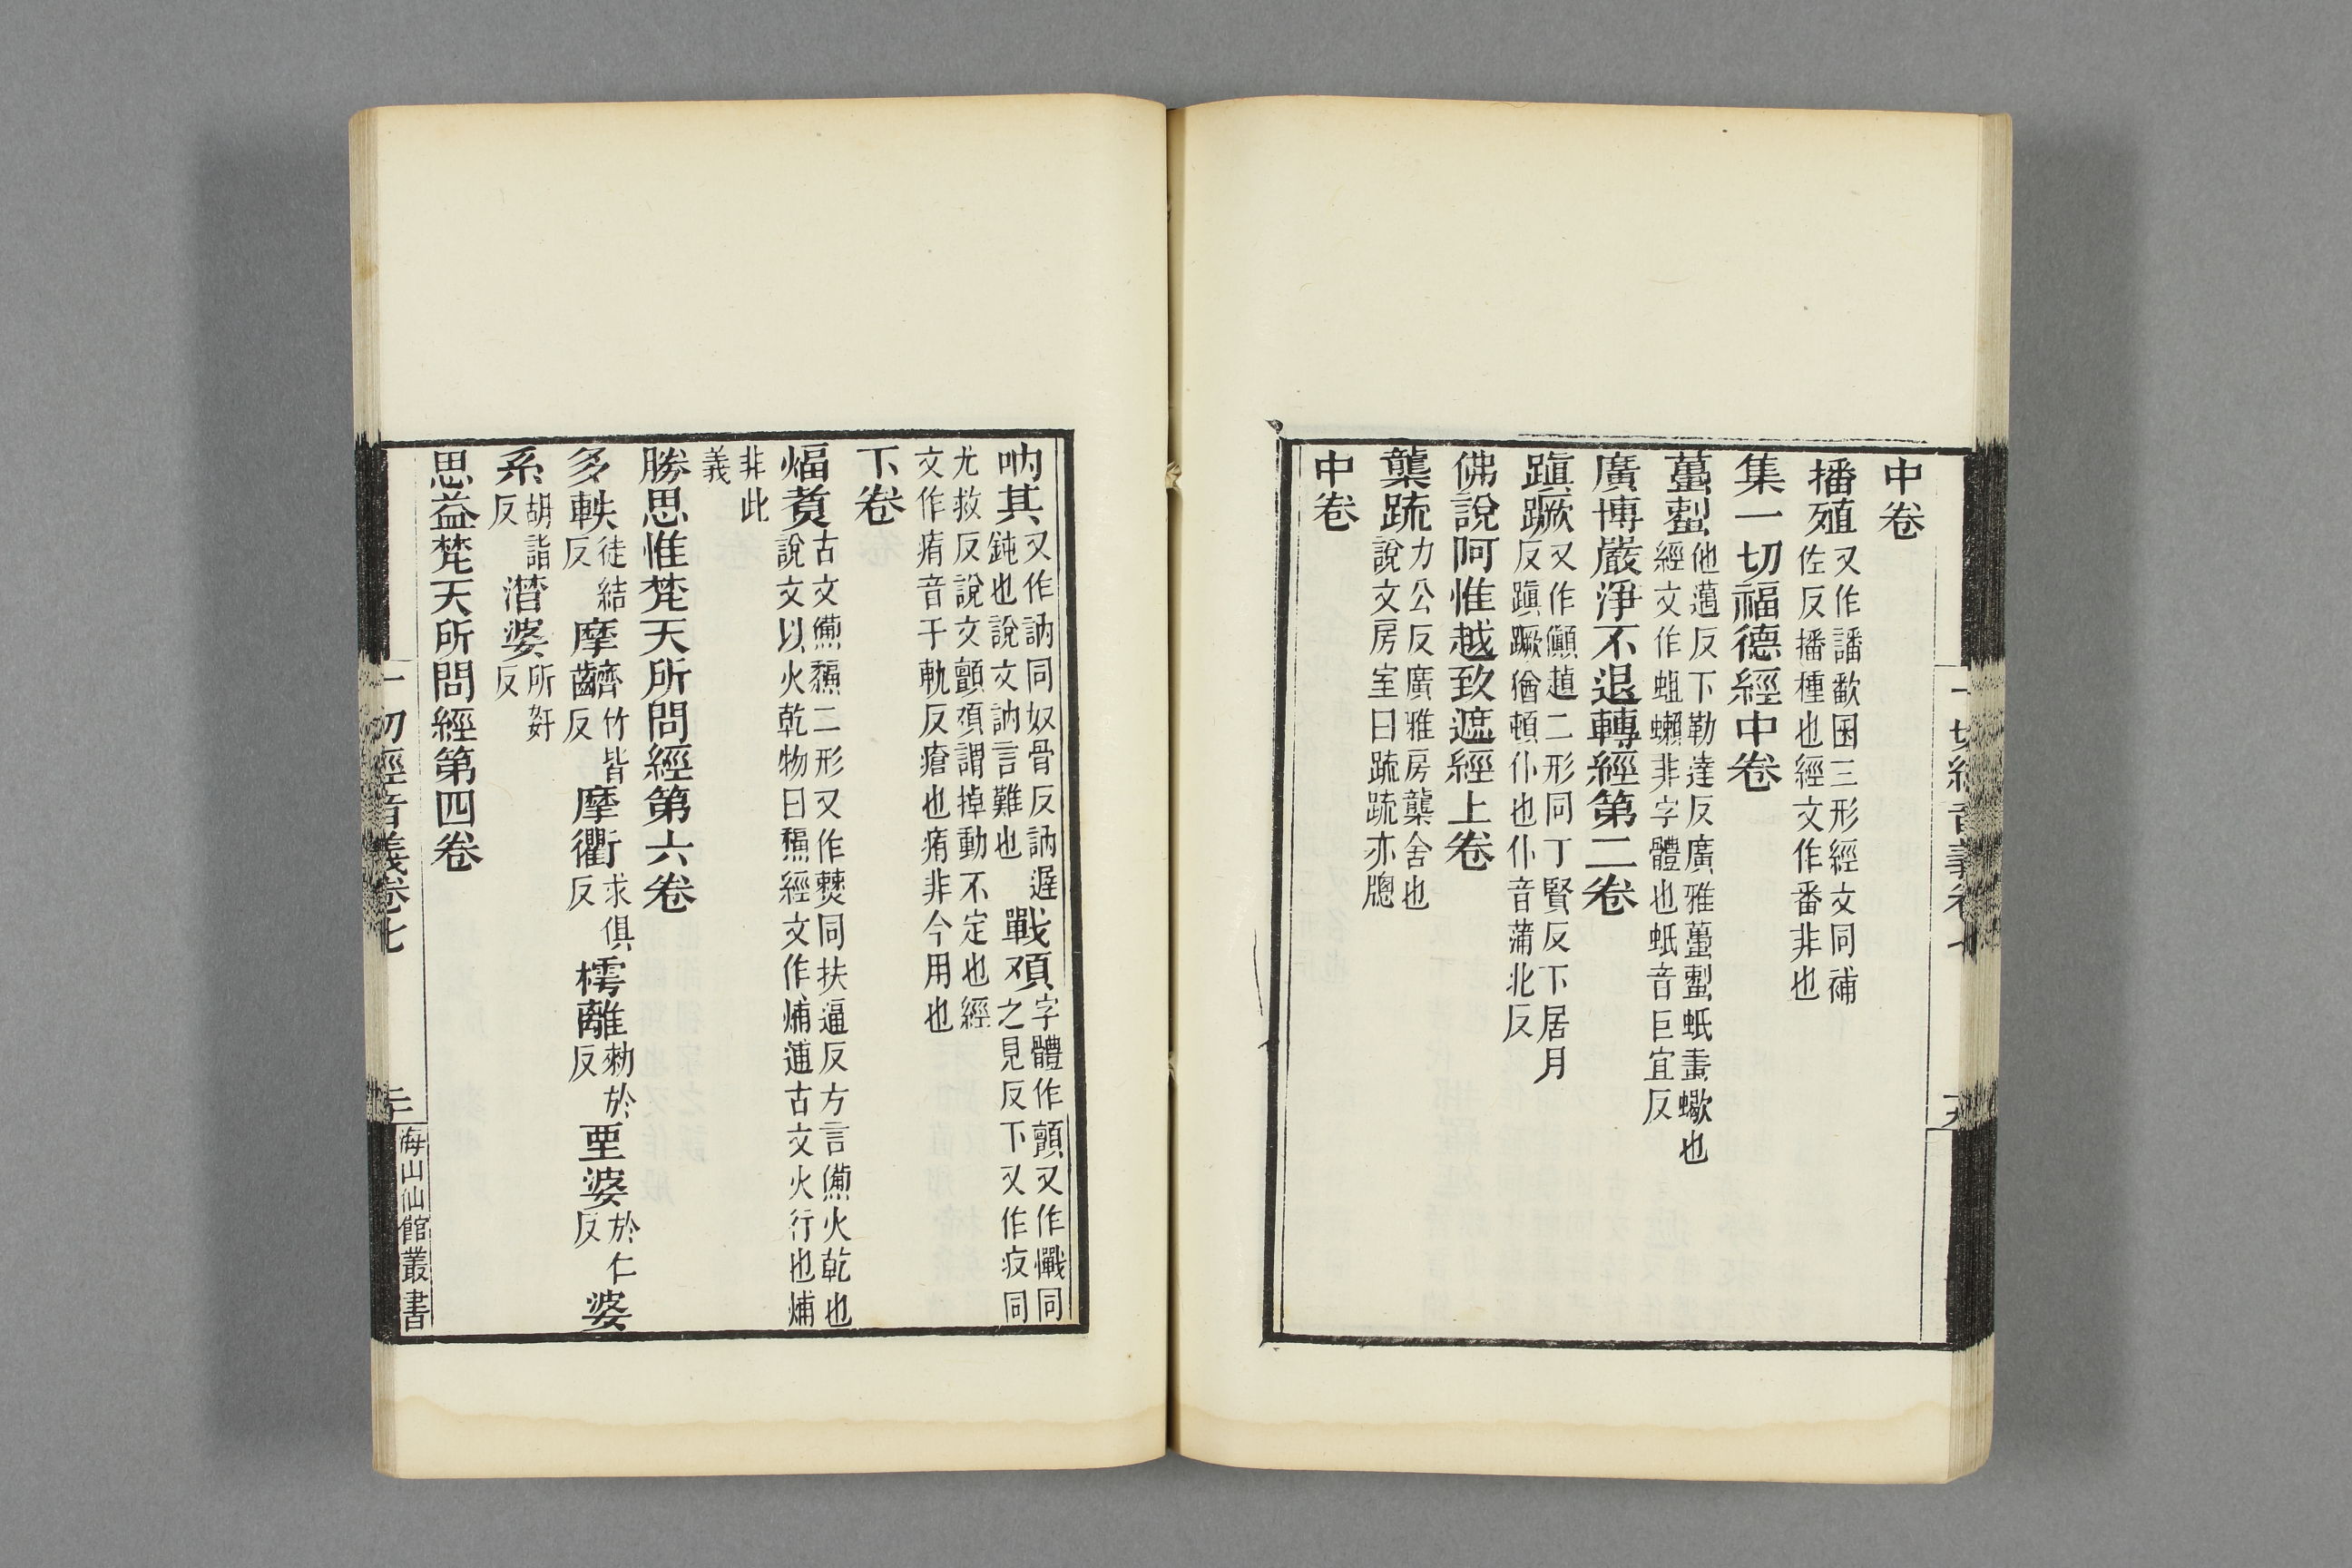 中卷
播殖又作譒㽃𡇈三形經文同補佐反播種也經文作番非也
集一切福德經中卷
蠆𧍞他邁反下勒達反廣雅蠆𧍞蚔畫蠍也經文作蛆蠏非字體也蚔音巨宜反
廣博嚴淨不退轉經第二卷
蹎蹶又作傎𧽍二形同丁賢反下居月反蹎蹶猶頓仆也仆音蒲北反
佛說阿惟越致遮經上卷
櫳䟽力公反廣雅房櫳舍也說文房室曰䟽䟽亦牕
中卷
一切經音義卷七
九
吶其又作訥同奴骨反訥遲鈍也說文訥言難也
戰頄字體作顫又作㦴同之見反下又作疢同
尤救反說文顫頄謂掉動不定也經文作痏音于軌反瘡也痏非今用也
下卷
煏䕼古文𤐧𥻅二形又作㷶同扶逼反方言㷶火乾也說文以火乾物曰𥻅經文作㷀逋古文火行也㷀
非此義
勝思惟梵天所問經第六卷
多軼徒結反摩䶩竹皆反摩衢求俱反樗離勑於反垔婆於仁反婆
系胡詣反潛婆所姧反
思益梵天所問經第四卷
一切經音義卷七
二十
海山仙館叢書